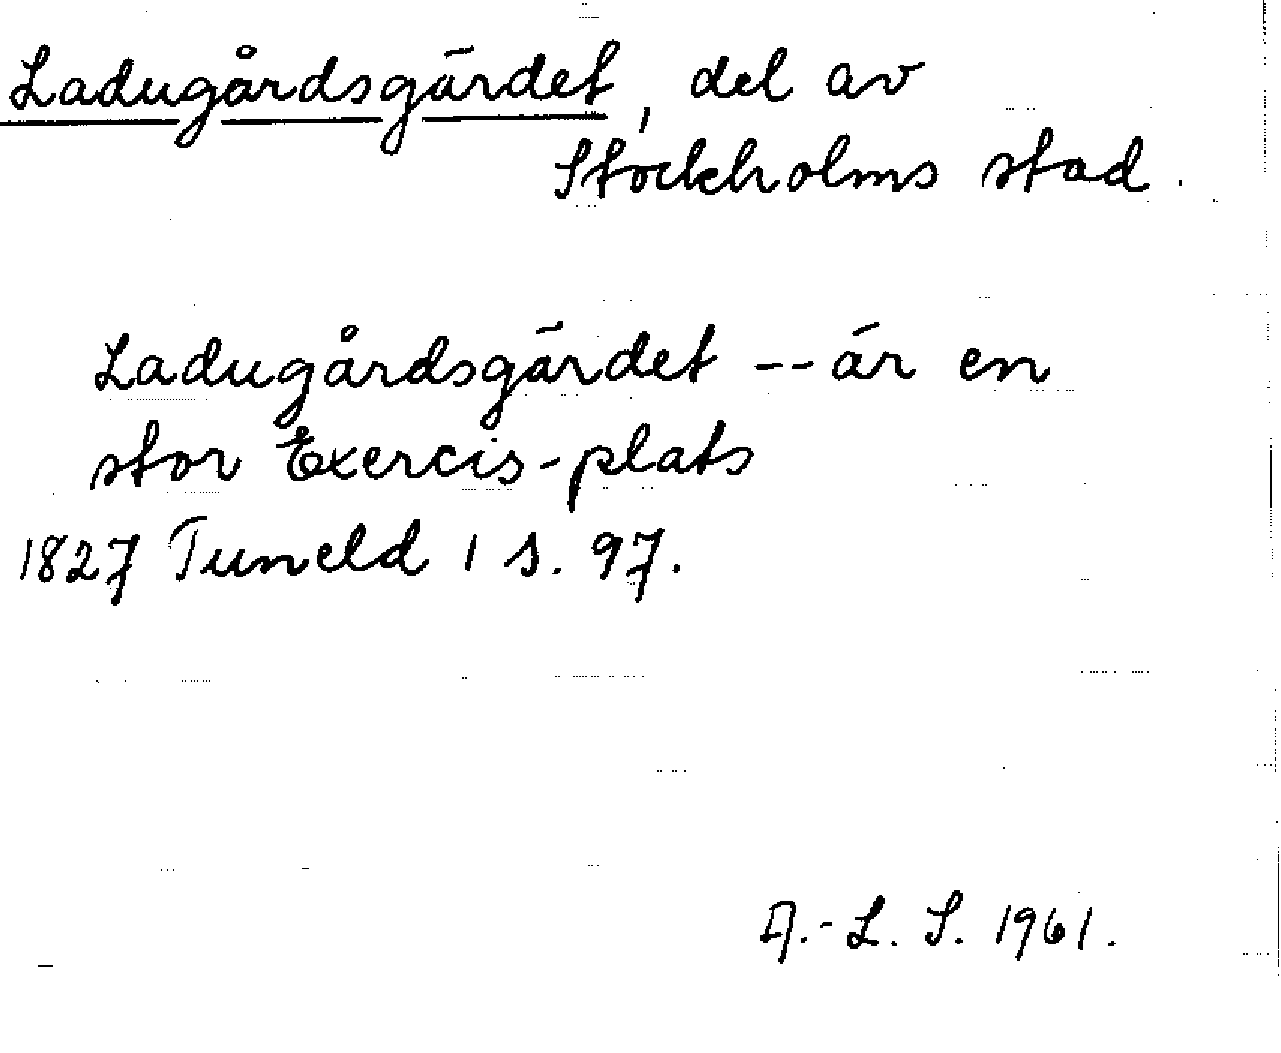 Ladugårdsgärdet, del av
Stockholms stad.
Ladugårdsgärdet -- är en
stor Exercis-plats
1827 Tuneld 1 s. 97.
A.-L. S. 1961.